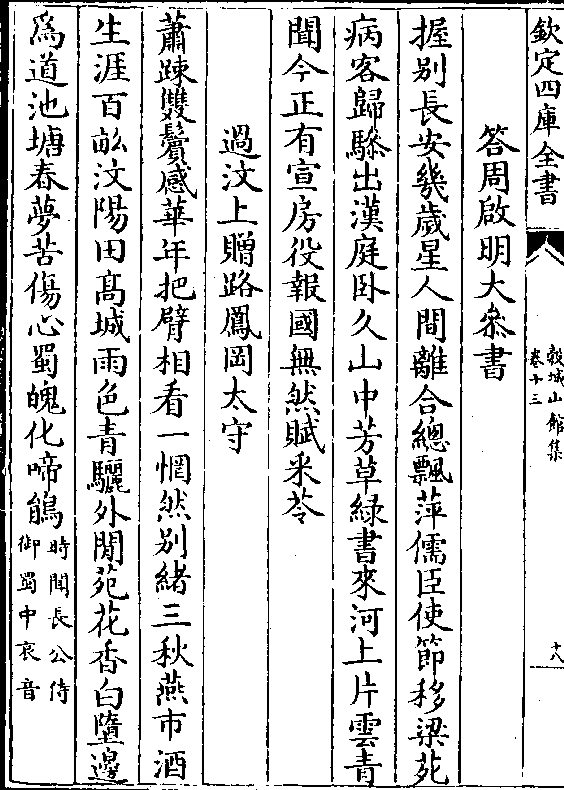 欽定四庫全書
榖城山館集
卷十三
十八
答周啟明大叅書
握别長安幾歲星人間離合總飄萍儒臣使節移梁苑
病客歸驂出漢庭卧久山中芳草緑書來河上片雲青
聞今正有宣房役報國無然賦采苓
過汶上贈路鳳岡太守
蕭踈雙鬢感華年把臂相看一惘然别緒三秋燕市酒
生涯百畝汶陽田髙城雨色青驪外閒苑花香白墮邊
為道池塘春夢苦傷心蜀魄化啼鵑
時聞長公侍
御蜀中哀音